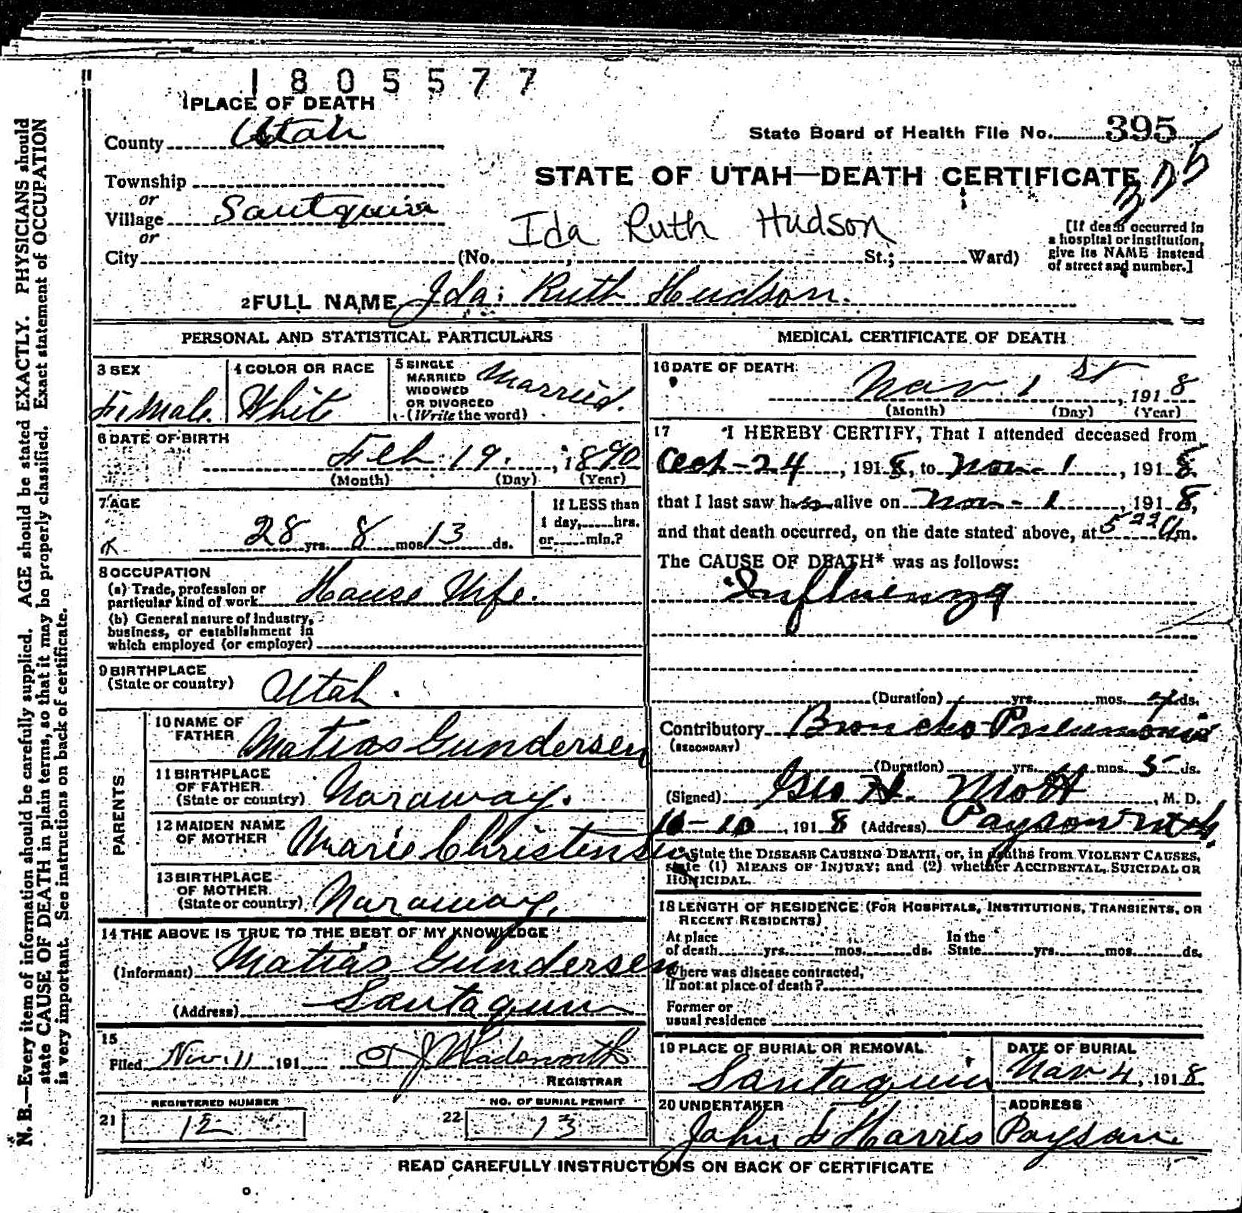 1805577
1 PLACE OF DEATH
County Utah
State Board of Health File No. 395
Township
or
STATE OF UTAH—DEATH CERTIFICATE
Village Santquin
or
Ida Ruth Hudson
[If death occurred in
a hospital or institution,
give its NAME instead
of street and number.]
City (No. , St.; Ward)
2 FULL NAME Ida Ruth Hudson.
PERSONAL AND STATISTICAL PARTICULARS
3 SEX
Female
4 COLOR OR RACE
White
5 SINGLE
MARRIED
WIDOWED
OR DIVORCED
(Write the word)
Married.
6 DATE OF BIRTH
Feb 19. , 1890
(Month) (Day) (Year)
7 AGE
28 yrs. 8 mos. 13 ds.
If LESS than
1 day, hrs.
or min.?
8 OCCUPATION
(a) Trade, profession or
particular kind of work House Wife.
(b) General nature of Industry,
business, or establishment in
which employed (or employer)
9 BIRTHPLACE
(State or country) Utah.
PARENTS
10 NAME OF
FATHER Matias Gundersen
11 BIRTHPLACE
OF FATHER
(State or country) Naraway.
12 MAIDEN NAME
OF MOTHER Marie Christensen
13 BIRTHPLACE
OF MOTHER
(State or country) Naraway.
14 THE ABOVE IS TRUE TO THE BEST OF MY KNOWLEDGE
(Informant) Matias Gundersen
(Address) Santaquin
15
Filed Nov. 11 191 J Wadsworth
REGISTRAR
21 REGISTERED NUMBER
12
22 NO. OF BURIAL PERMIT
13
MEDICAL CERTIFICATE OF DEATH
16 DATE OF DEATH
Nov 1 st , 1918
(Month) (Day) (Year)
17 I HEREBY CERTIFY, That I attended deceased from
Oct-24 , 1918, to Nov-1 , 1918
that I last saw her alive on Nov-1 , 1918,
and that death occurred, on the date stated above, at 5 22 m.
The CAUSE OF DEATH* was as follows:
Influenza
(Duration) yrs. mos. ds.
Contributory Broncho Pneumonia
(SECONDARY)
(Duration) yrs. mos. 5 ds.
(Signed) Geo H. Mott , M. D.
11-10 , 1918 (Address) Payson Utah
* State the DISEASE CAUSING DEATH, or, in deaths from VIOLENT CAUSES,
state (1) MEANS OF INJURY; and (2) whether ACCIDENTAL, SUICIDAL OR
HOMICIDAL.
18 LENGTH OF RESIDENCE (FOR HOSPITALS, INSTITUTIONS, TRANSIENTS, OR
RECENT RESIDENTS)
At place
of death yrs. mos. ds.
In the
State yrs. mos. ds.
Where was disease contracted,
If not at place of death?
Former or
usual residence
19 PLACE OF BURIAL OR REMOVAL
Santaquin
DATE OF BURIAL
Nov 4 , 1918
20 UNDERTAKER
John F Harris
ADDRESS
Payson
READ CAREFULLY INSTRUCTIONS ON BACK OF CERTIFICATE
N. B.—Every item of information should be carefully supplied. AGE should be stated EXACTLY. PHYSICIANS should
state CAUSE OF DEATH in plain terms, so that it may be properly classified. Exact statement of OCCUPATION
is very important. See instructions on back of certificate.